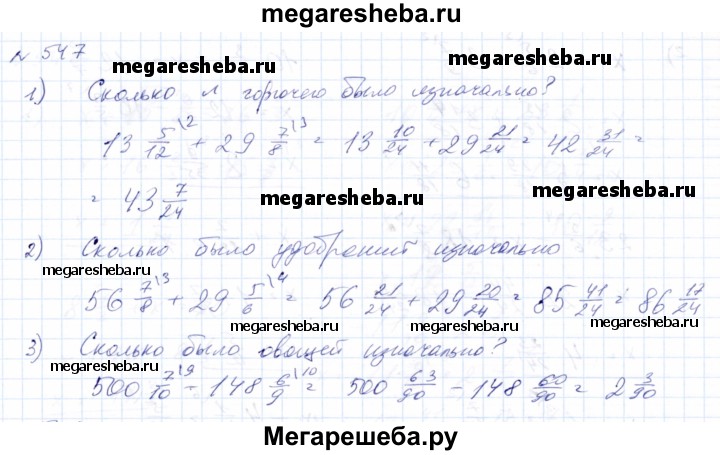 megaresheba.ru
№ 547
megaresheba.ru megaresheba.ru
1) Сколько л горючего было изначально?
13 5/12 \2 + 29 7/8 \3 = 13 10/24 + 29 21/24 = 42 31/24 =
= 43 7/24
megaresheba.ru megaresheba.ru
2) Сколько было удобрений изначально
megaresheba.ru
56 7/8 \3 + 29 5/6 \4 = 56 21/24 + 29 20/24 = 85 41/24 = 86 17/24
megaresheba.ru megaresheba.ru
3) Сколько было овощей изначально?
megaresheba.ru megaresheba.ru
500 7/10 \9 - 148 6/9 \10 = 500 63/90 - 148 60/90 = 2 3/90
Мегарешеба.ру